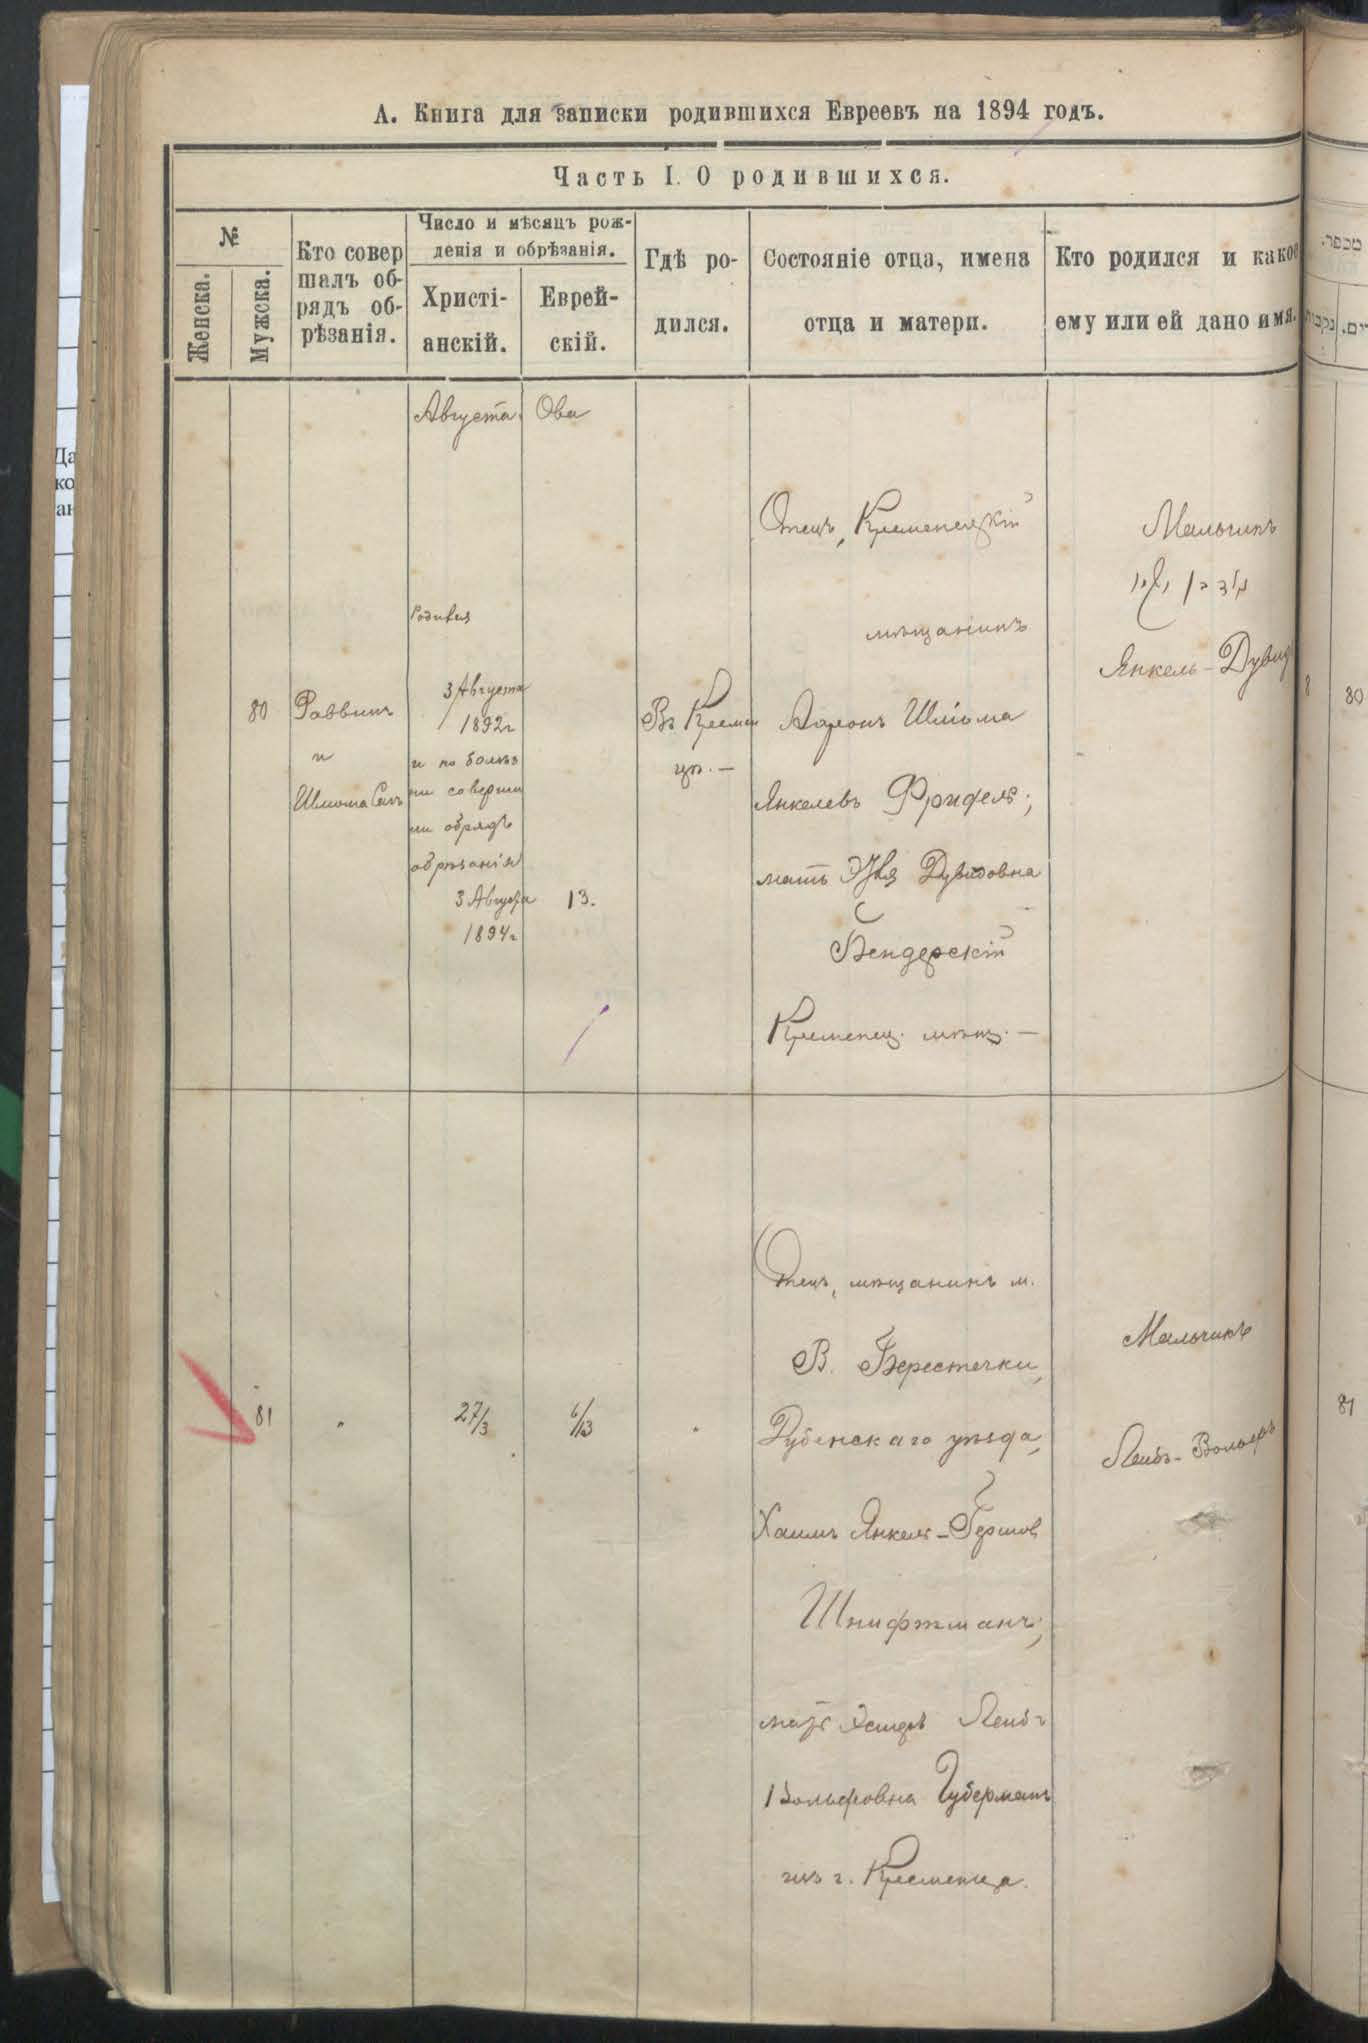 А. Книга для записки родившихся Евреевъ на 1894 годъ.
Часть I. О родившихся.
№
Женска.
Мужска.
Кто совер
шалъ об-
рядъ об-
рѣзанія.
Число и мѣсяцъ рож-
денія и обрѣзанія.
Христі-
анскій.
Еврей-
скій.
Гдѣ ро-
дился.
Состояніе отца, имена
отца и матери.
Кто родился и какое
ему или ей дано имя.
Августа
Ова
80
Раввинъ
и
Шлиома
Родился
3 Августа
1892 г
и по болѣз
ни соверши
ли обрядъ
обрѣзанія
3 Августа
1894 г
13.
Въ Кремен
цѣ. —
Отецъ, Кременецкій
мѣщанинъ
Аоронъ Шліома
Янкелевъ Фридель;
мать Дувидовна
Бендерскій
Кременец. мѣщ. —
Мальчикъ
Янкель-Дувид
81
"
27/3
6/13
"
Отецъ, мѣщанинъ м.
В. Берестечки,
Дубенскаго уѣзда,
Хаимъ Янкель-Гершов
Шнифтманъ;
мать Эстеръ Лейбъ
Вольфовна Губерманъ
изъ г. Кременца.
Мальчикъ
Лейбъ-Вольфъ
מספר.
נקבות
80
81
Да
ко
ан